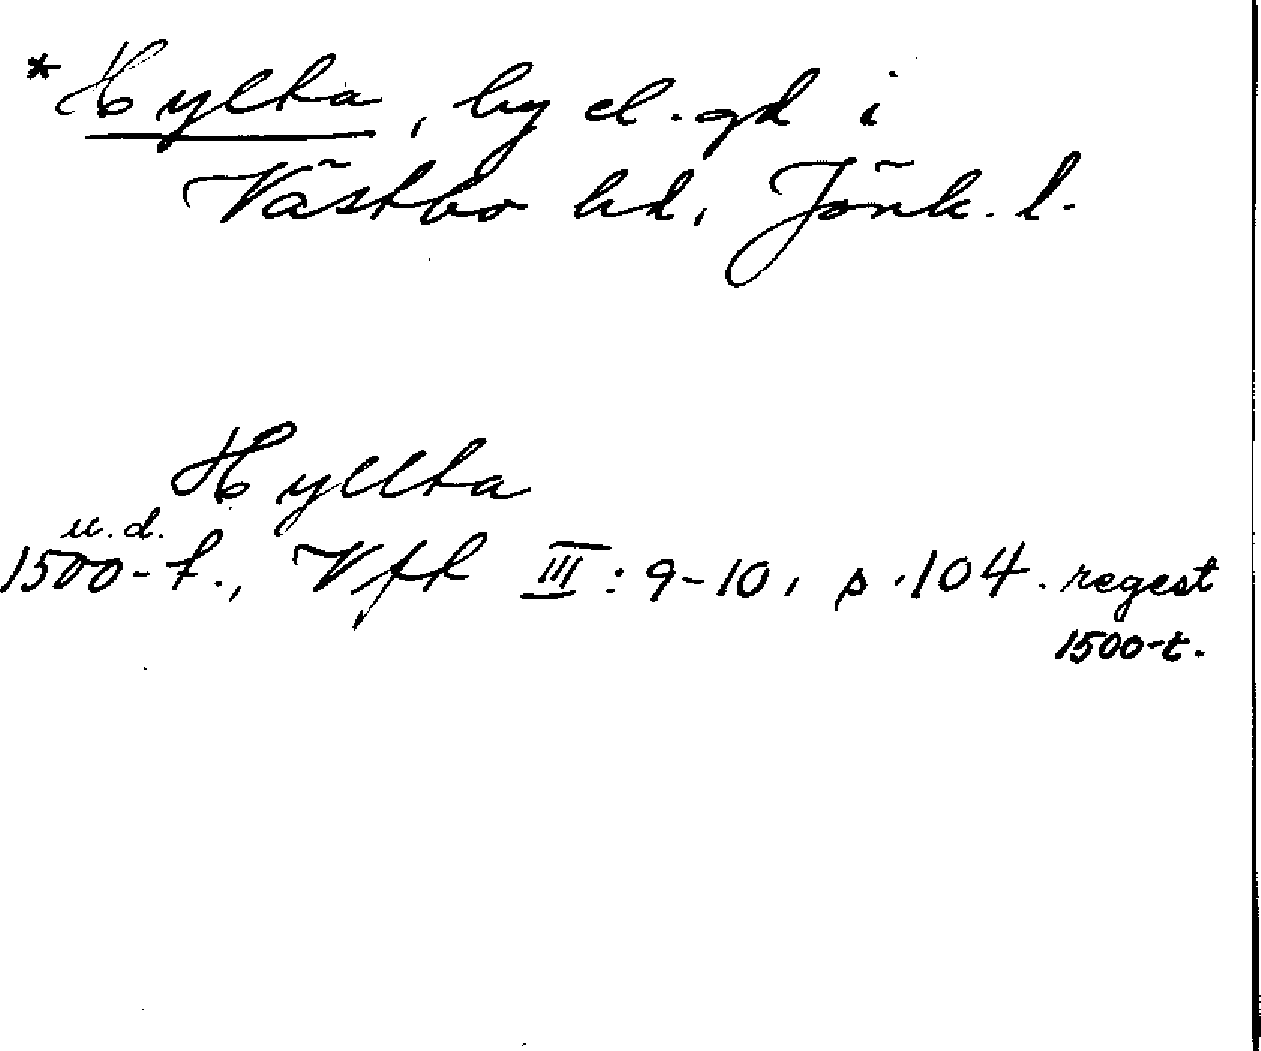 *Hylta, by el. gd i
Västbo hd, Jönk. l.
Hyllta
u.d.
1500-t., Vfk III: 9-10, s. 104. regest
1500-t.